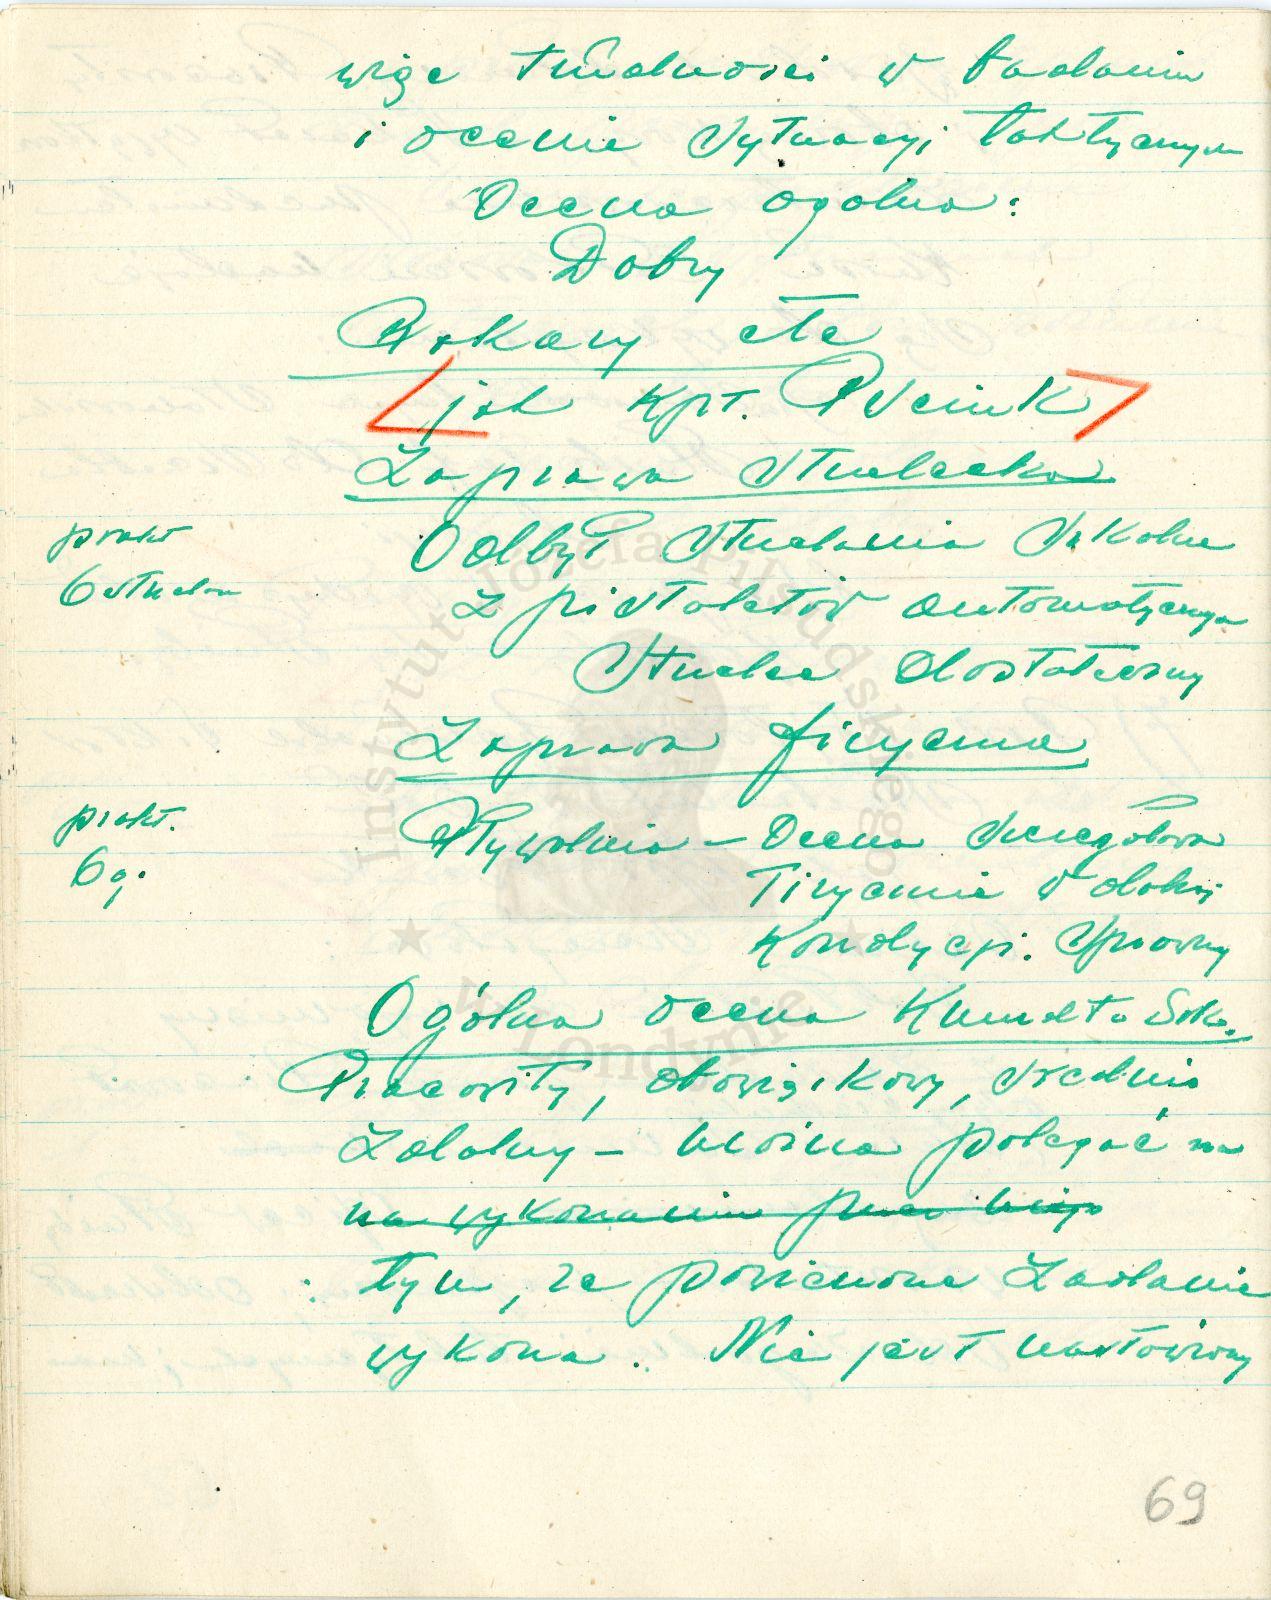 więc trudności w badaniu
i ocenie sytuacyj taktycznych
Ocena ogólna:
Dobry
Pokazy etc
jak kpt. Pscink
Zaprawa strzelecka
prakt
6 strzelań
Odbył strzelania szkolne
z pistoletów automatycznych
Strzelec dostateczny
Zaprawa fizyczna
prakt.
6 g.
Pływalnia – Ocena szczegółowa
Fizycznie w dobrej
kondycji. Sprawny
Ogólna ocena Kmdta Szk.
Pracowity, obowiązkowy, średnio
zdolny – można polegać na
na wykonaniu przez niego
tym, że powierzone zadanie
wykona. Nie jest
69
Instytut Józefa Piłsudskiego
w Londynie